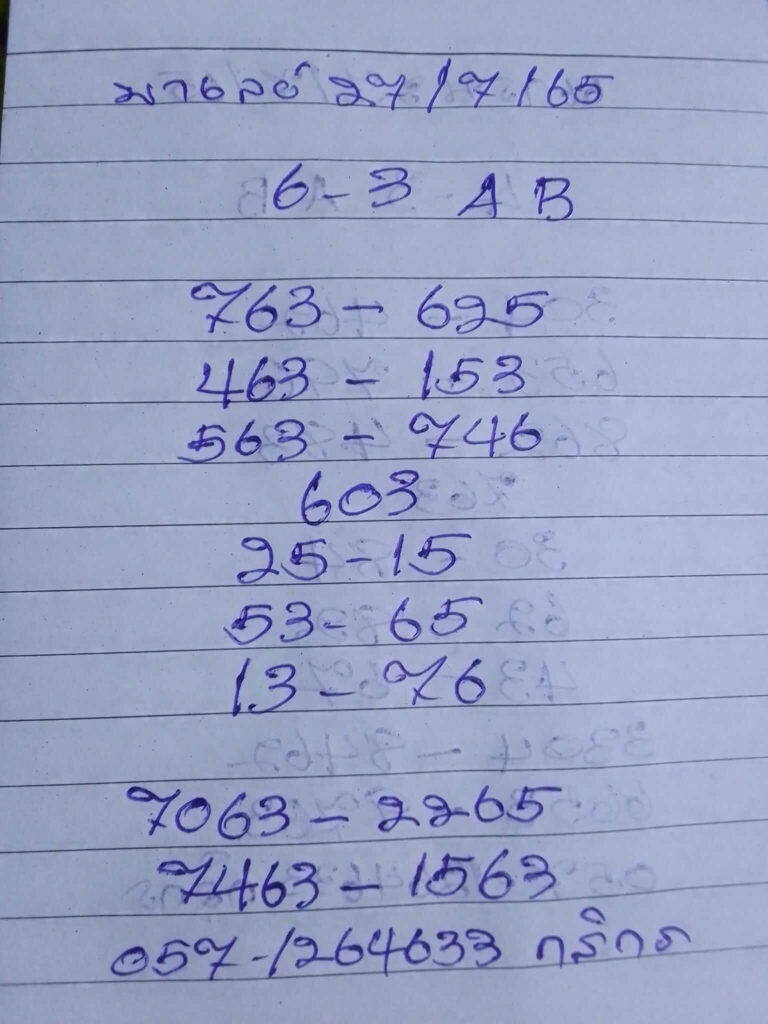 มาเลย์ 27/7/65
6-3 AB
763 - 625
463 - 153
563 - 746
603
25 - 15
53 - 65
13 - 76
7063 - 2265
7463 - 1563
057-1264633